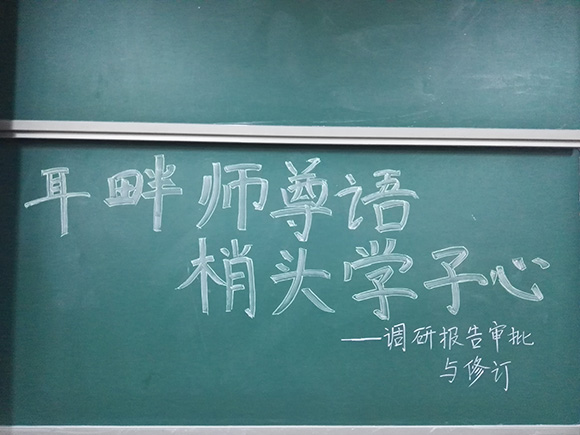 耳畔师尊语
梢头学子心
——调研报告审批
与修订